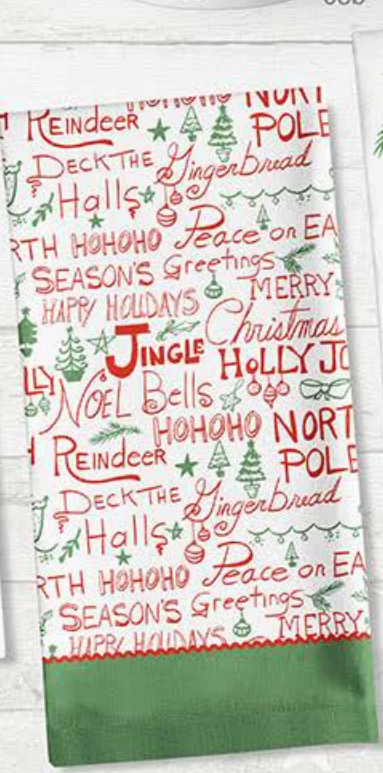 HOHOHO NORT
REINDEER POLE
DECK THE Gingerbread
Halls
RTH HOHOHO Peace on EA
SEASON'S Greetings
MERRY
HAPPY HOLIDAYS
Christmas
JINGLE
HOLLY JO
LLY NOEL Bells
HOHOHO NORT
REINDEER POLE
DECK THE Gingerbread
Halls
RTH HOHOHO Peace on EA
SEASON'S Greetings
MERRY
HAPPY HOLIDAYS